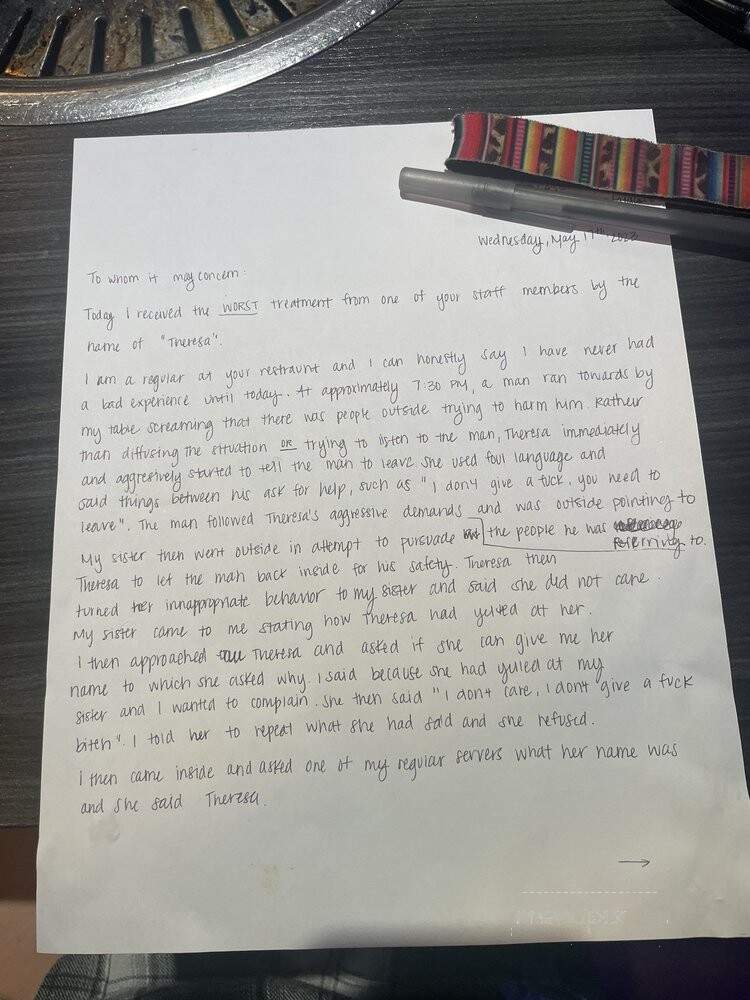 Wednesday, May 17th 2023
To whom it may concern:
Today I received the WORST treatment from one of your staff members by the
name of "Theresa".
I am a regular at your restraunt and I can honestly say I have never had
a bad experience until today. At approximately 7:30 PM, a man ran towards by
my table screaming that there was people outside trying to harm him. Rather
than diffusing the situation OR trying to listen to the man, Theresa immediately
and aggresively started to tell the man to leave. She used foul language and
said things between his ask for help, such as "I don't give a fuck, you need to
leave". The man followed Theresa's aggressive demands and was outside pointing to
the people he was referring to.
My sister then went outside in attempt to pursuade
Theresa to let the man back inside for his safety. Theresa then
turned her innappropriate behavior to my sister and said she did not care.
My sister came to me stating how Theresa had yelled at her.
I then approached Theresa and asked if she can give me her
name to which she asked why. I said because she had yelled at my
sister and I wanted to complain. She then said "I don't care, I don't give a fuck
bitch". I told her to repeat what she had said and she refused.
I then came inside and asked one of my regular servers what her name was
and she said Theresa.
→